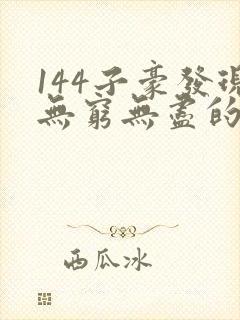 144子豪發現
無窮無盡的
西瓜冰